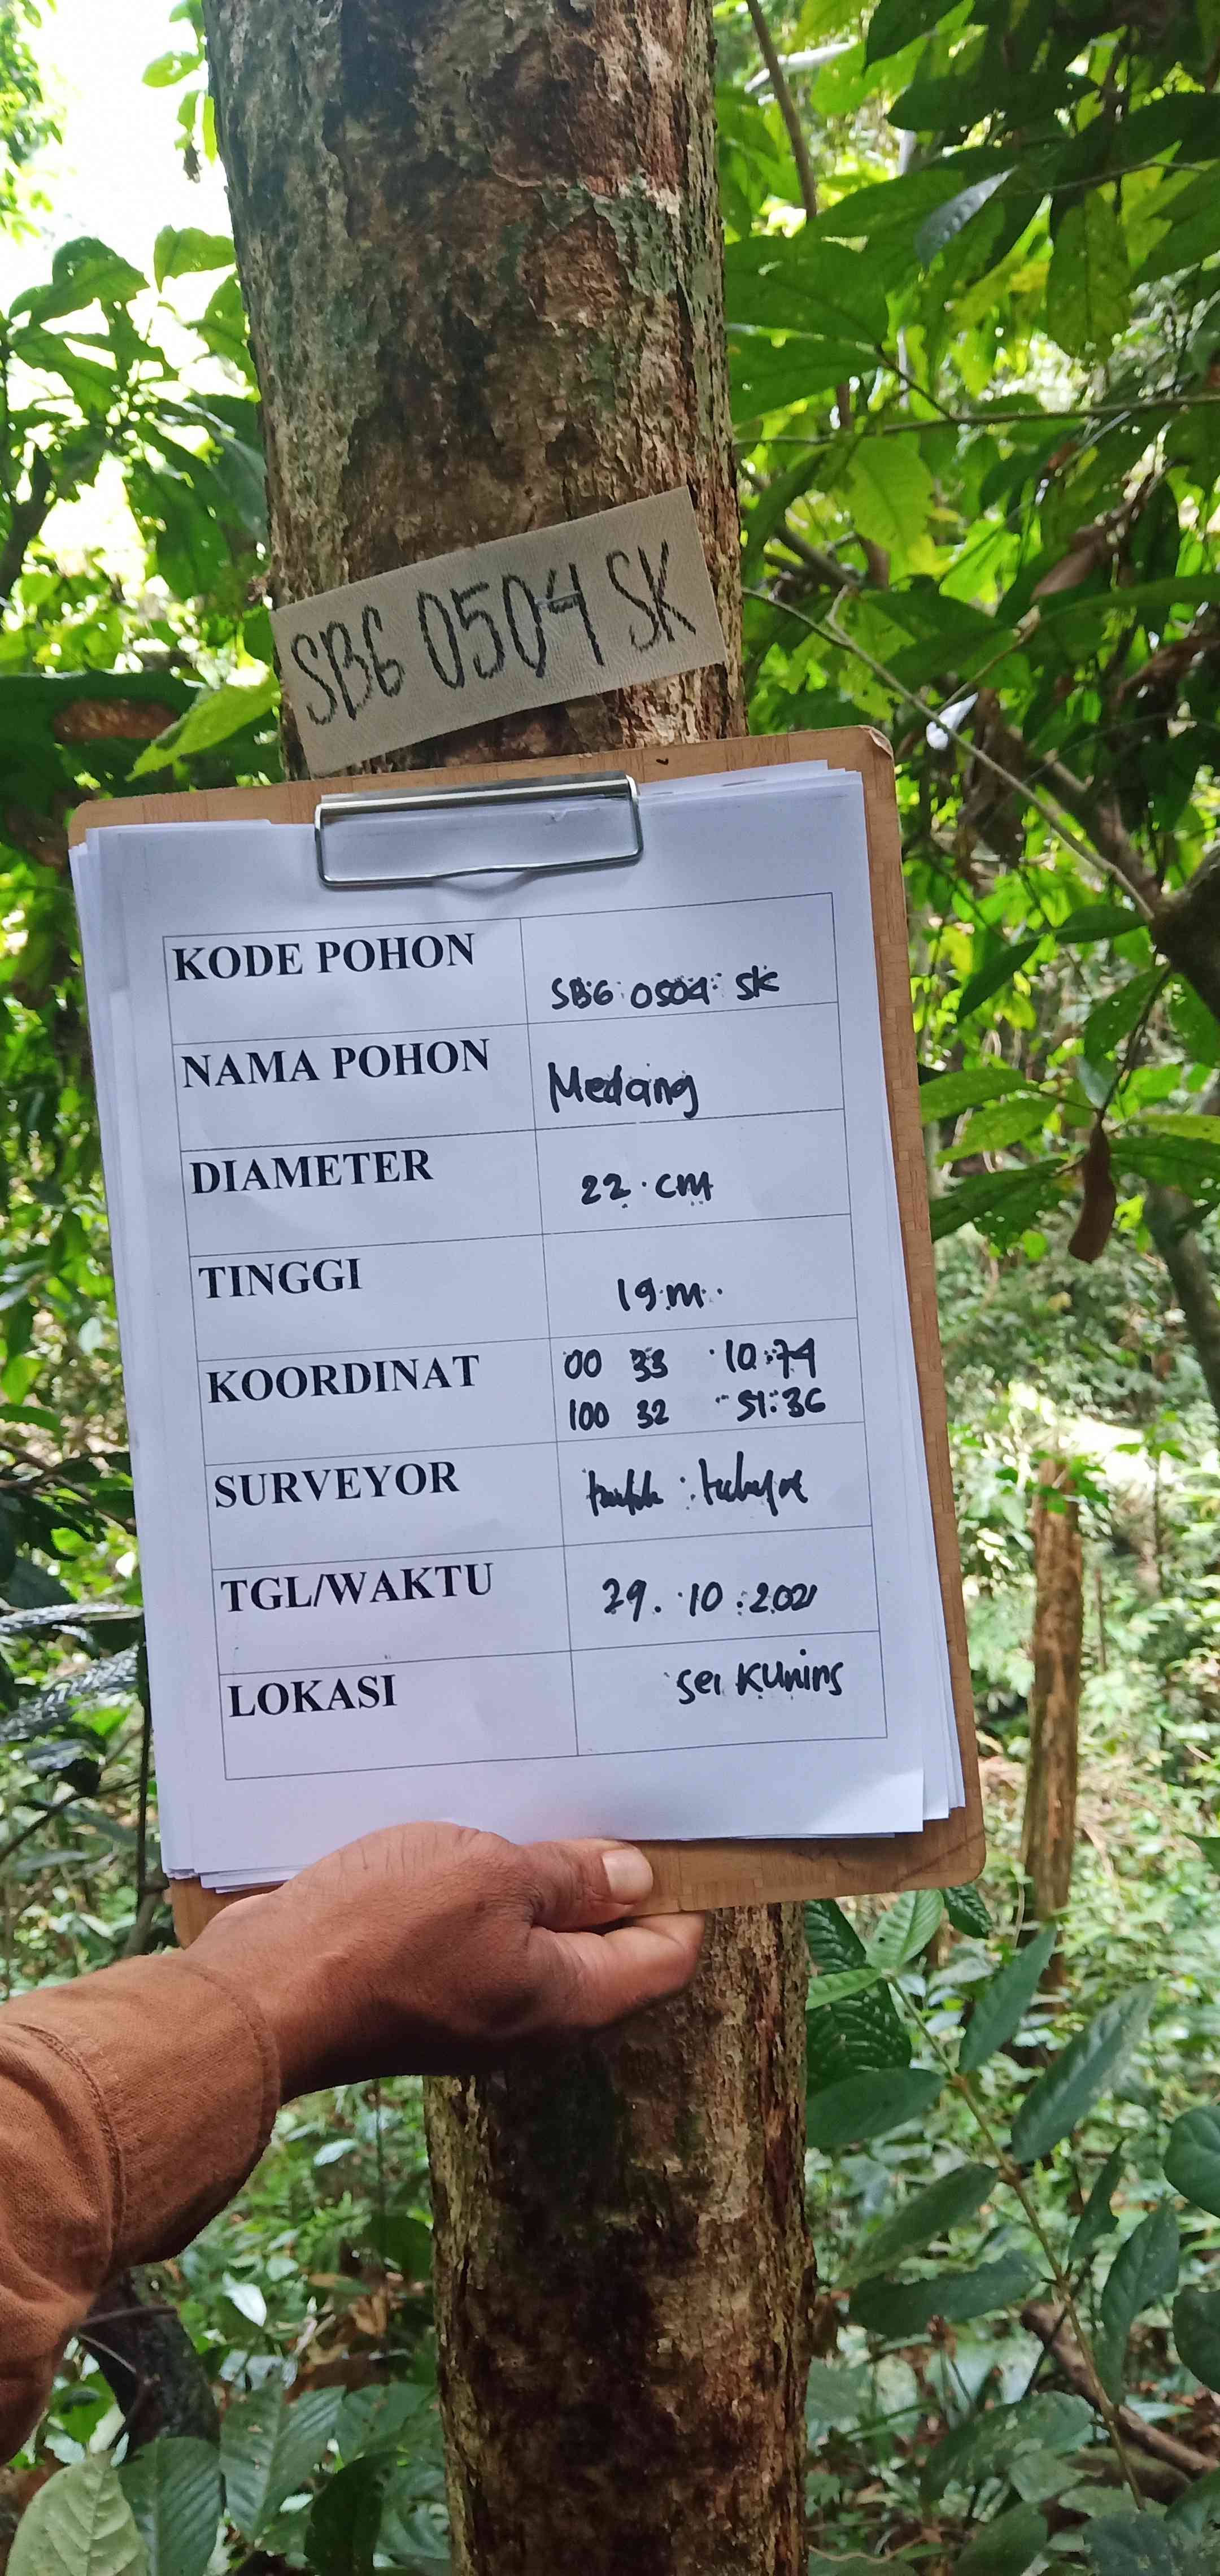 SBG 0504 SK
KODE POHON SBG 0504 SK
NAMA POHON Medang
DIAMETER 22 cm
TINGGI 19 m.
KOORDINAT 00 33 10.74
100 32 51.36
SURVEYOR
TGL/WAKTU 29. 10. 2021
LOKASI Sei Kuning